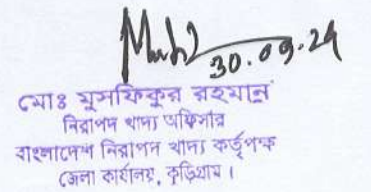 30.09.24
মোঃ মুসফিকুর রহমান
নিরাপদ খাদ্য অফিসার
বাংলাদেশ নিরাপদ খাদ্য কর্তৃপক্ষ
জেলা কার্যালয়, কুড়িগ্রাম।